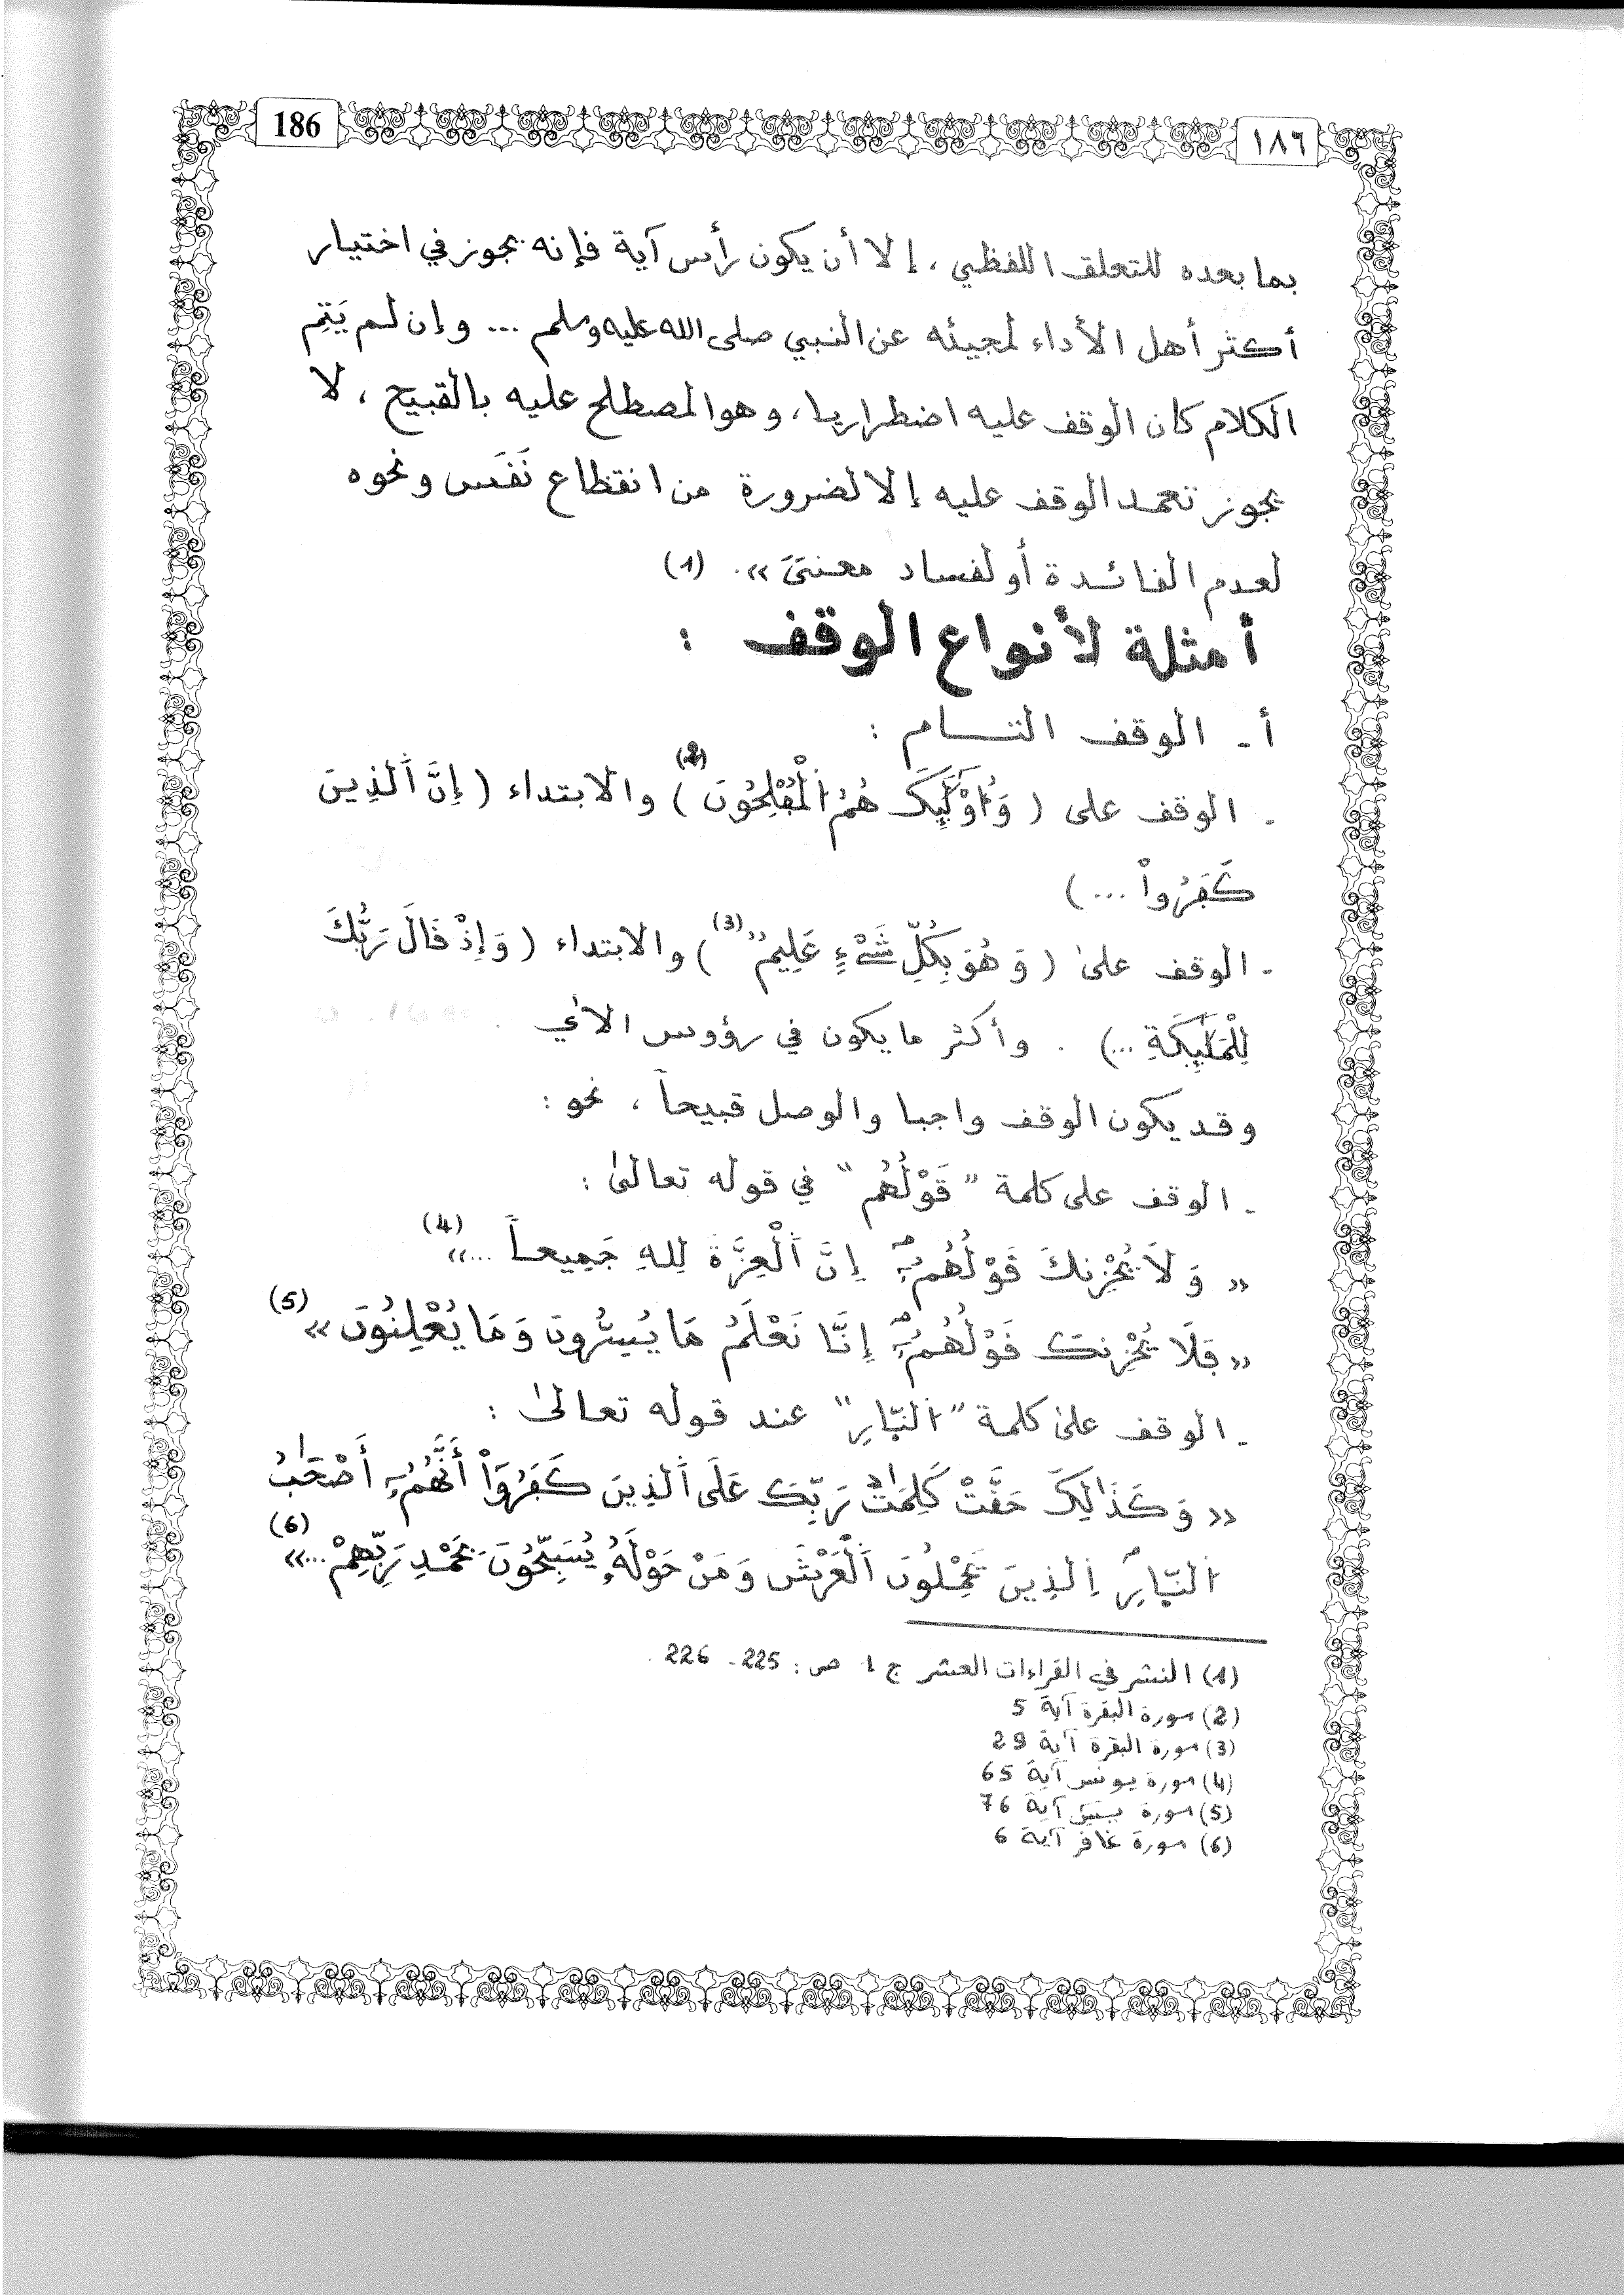 186
١٨٦
بما بعده للتعلق اللفظي ، إلا أن يكون رأس آية فإنه يجوز في اختيار
أكثر أهل الأداء لمجيئه عن النبي صلى الله عليه وسلم ... وإن لم يَتِم
الكلام كان الوقف عليه اضطراريا ، وهو المصطلح عليه بالقبيح ، لا
يجوز تعمد الوقف عليه إلا لضرورة من انقطاع نَفَس ونحوه
لعدم الفائدة أو لفساد معنىً ». (1)
أمثلة لأنواع الوقف :
أ - الوقف التام :
- الوقف على ( وَأُوْلَٰٓئِكَ هُمُ اُ۬لْمُفْلِحُونَ (2) ) والابتداء ( إِنَّ اَ۬لذِينَ
كَفَرُواْ ... )
- الوقف على ( وَهُوَ بِكُلِّ شَےْءٍ عَلِيمٌ (3) ) والابتداء ( وَإِذْ قَالَ رَبُّكَ
لِلْمَلَٰٓئِكَةِ ... ) . وأكثر ما يكون في رؤوس الآي
وقد يكون الوقف واجبا والوصل قبيحاً ، نحو :
- الوقف على كلمة "قَوْلُهُم" في قوله تعالى :
« وَلَا يُحْزِنكَ قَوْلُهُمُۥٓۖ إِنَّ اَ۬لْعِزَّةَ لِلهِ جَمِيعاً ... » (4)
« فَلَا يُحْزِنكَ قَوْلُهُمُۥٓۖ إِنَّا نَعْلَمُ مَا يُسِرُّونَ وَمَا يُعْلِنُونَ » (5)
- الوقف على كلمة "اُ۬لنّ۪ارِ" عند قوله تعالى :
« وَكَذَٰلِكَ حَقَّتْ كَلِمَٰتُ رَبِّكَ عَلَى اَ۬لذِينَ كَفَرُوٓاْ أَنَّهُمُۥٓ أَصْحَٰبُ
اُ۬لنّ۪ارِۖ اِ۬لذِينَ يَحْمِلُونَ اَ۬لْعَرْشَ وَمَنْ حَوْلَهُۥ يُسَبِّحُونَ بِحَمْدِ رَبِّهِمْ ... » (6)
(1) النشر في القراءات العشر ج 1 ص : 225 - 226 .
(2) سورة البقرة آية 5
(3) سورة البقرة آية 29
(4) سورة يونس آية 65
(5) سورة يسٓ آية 76
(6) سورة غافر آية 6